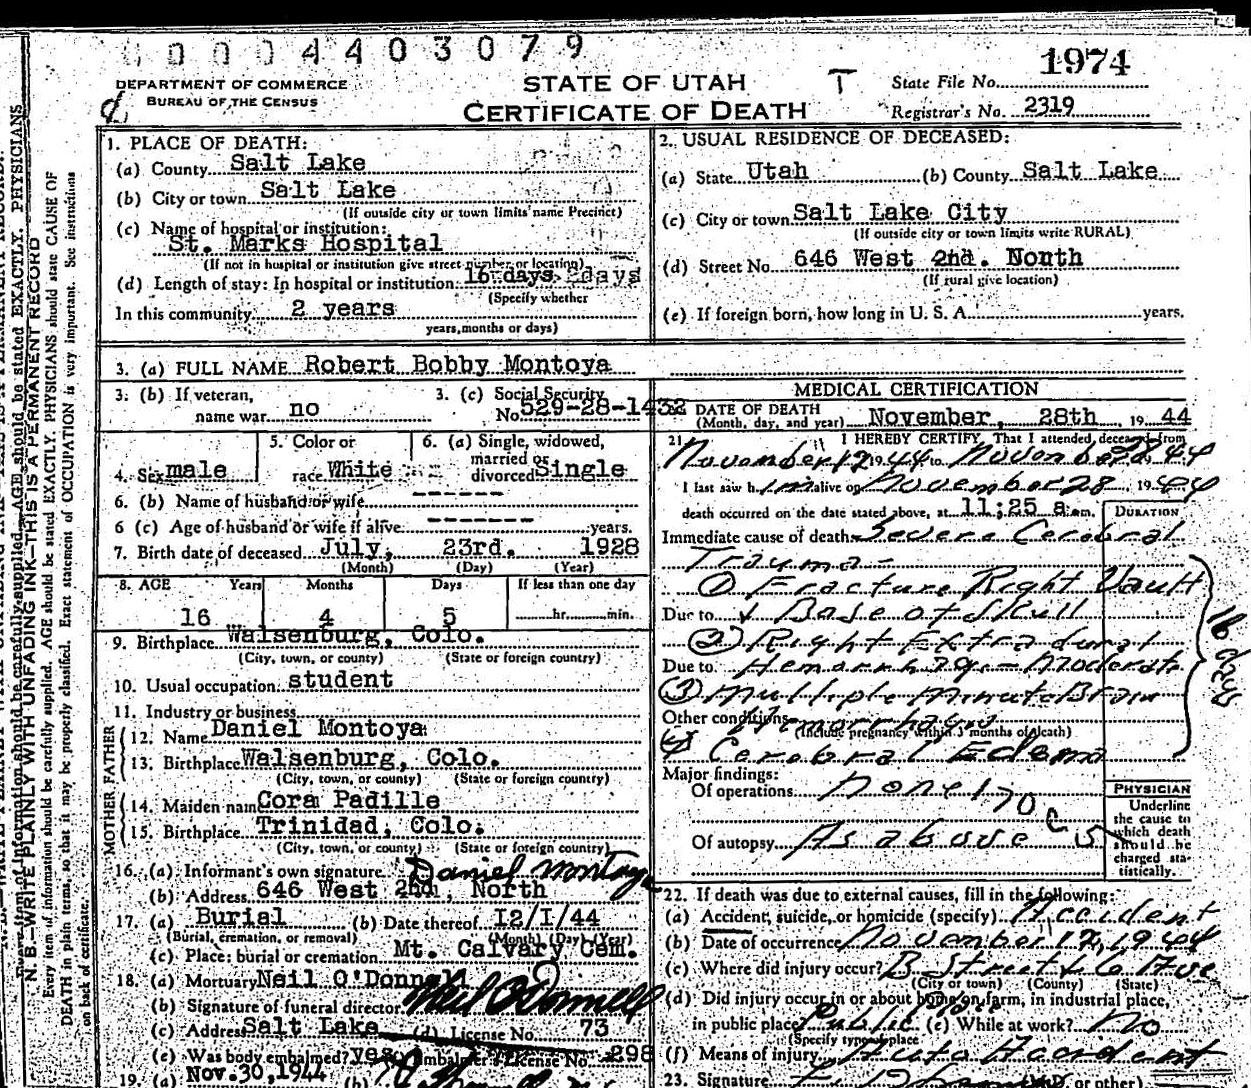 0004403079
1974
DEPARTMENT OF COMMERCE
BUREAU OF THE CENSUS
STATE OF UTAH
CERTIFICATE OF DEATH
T
State File No.
Registrar's No. 2319
1. PLACE OF DEATH:
(a) County Salt Lake
(b) City or town Salt Lake
(If outside city or town limits name Precinct)
(c) Name of hospital or institution:
St. Marks Hospital
(If not in hospital or institution give street number or location)
(d) Length of stay: In hospital or institution: 16 days days
(Specify whether
In this community 2 years
years, months or days)
2. USUAL RESIDENCE OF DECEASED:
(a) State Utah (b) County Salt Lake
(c) City or town Salt Lake City
(If outside city or town limits write RURAL)
(d) Street No. 646 West 2nd. North
(If rural give location)
(e) If foreign born, how long in U. S. A. years.
3. (a) FULL NAME Robert Bobby Montoya
3. (b) If veteran,
name war no
3. (c) Social Security
No. 529-28-1432
4. Sex male
5. Color or
race White
6. (a) Single, widowed,
married or
divorced Single
6. (b) Name of husband or wife
6 (c) Age of husband or wife if alive years.
7. Birth date of deceased July, 23rd. 1928
(Month) (Day) (Year)
8. AGE Years Months Days If less than one day
16 4 5 hr. min.
9. Birthplace Walsenburg, Colo.
(City, town, or county) (State or foreign country)
10. Usual occupation student
11. Industry or business
FATHER
12. Name Daniel Montoya
13. Birthplace Walsenburg, Colo.
(City, town, or county) (State or foreign country)
MOTHER
14. Maiden name Cora Padille
15. Birthplace Trinidad, Colo.
(City, town, or county) (State or foreign country)
16. (a) Informant's own signature Daniel Montoya
(b) Address 646 West 2nd, North
17. (a) Burial (b) Date thereof 12/1/44
(Burial, cremation, or removal) (Month) (Day) (Year)
(c) Place: burial or cremation Mt. Calvary Cem.
18. (a) Mortuary Neil O'Donnell
(b) Signature of funeral director Neil O'Donnell
(c) Address Salt Lake (d) License No. 73
(e) Was body embalmed? yes Embalmer's License No. 298
19. (a) Nov.30,1944 (b)
MEDICAL CERTIFICATION
20. DATE OF DEATH
(Month, day, and year) November, 28th, 1944
21. I HEREBY CERTIFY, That I attended deceased from
November 12 1944 to November 28 1944
I last saw him alive on November 28, 1944
death occurred on the date stated above, at 11:25 a.m.
DURATION
Immediate cause of death Severe Cerebral
Trauma -
① Fracture Right Vault
Due to + Base of Skull
② Right Extradural
Due to Hemorrhage - Moderate
③ Multiple Minute Brain
Other conditions Hemorrhages
(Include pregnancy within 3 months of death)
④ Cerebral Edema
16 days
Major findings:
Of operations None
170 C
Of autopsy As above
PHYSICIAN
Underline
the cause to
which death
should be
charged sta-
tistically.
22. If death was due to external causes, fill in the following:
(a) Accident, suicide, or homicide (specify) Accident
(b) Date of occurrence November 12, 1944
(c) Where did injury occur? B Street & 6 Ave
(City or town) (County) (State)
(d) Did injury occur in or about home, on farm, in industrial place,
in public place? Public place (e) While at work? No
(Specify type of place
(f) Means of injury Auto Accident
23. Signature (M.D. or other)
N. B.—WRITE PLAINLY WITH UNFADING INK—THIS IS A PERMANENT RECORD
Every item of information should be carefully supplied. AGE should be stated EXACTLY. PHYSICIANS should state CAUSE OF
DEATH in plain terms, so that it may be properly classified. Exact statement of OCCUPATION is very important. See instructions
on back of certificate.